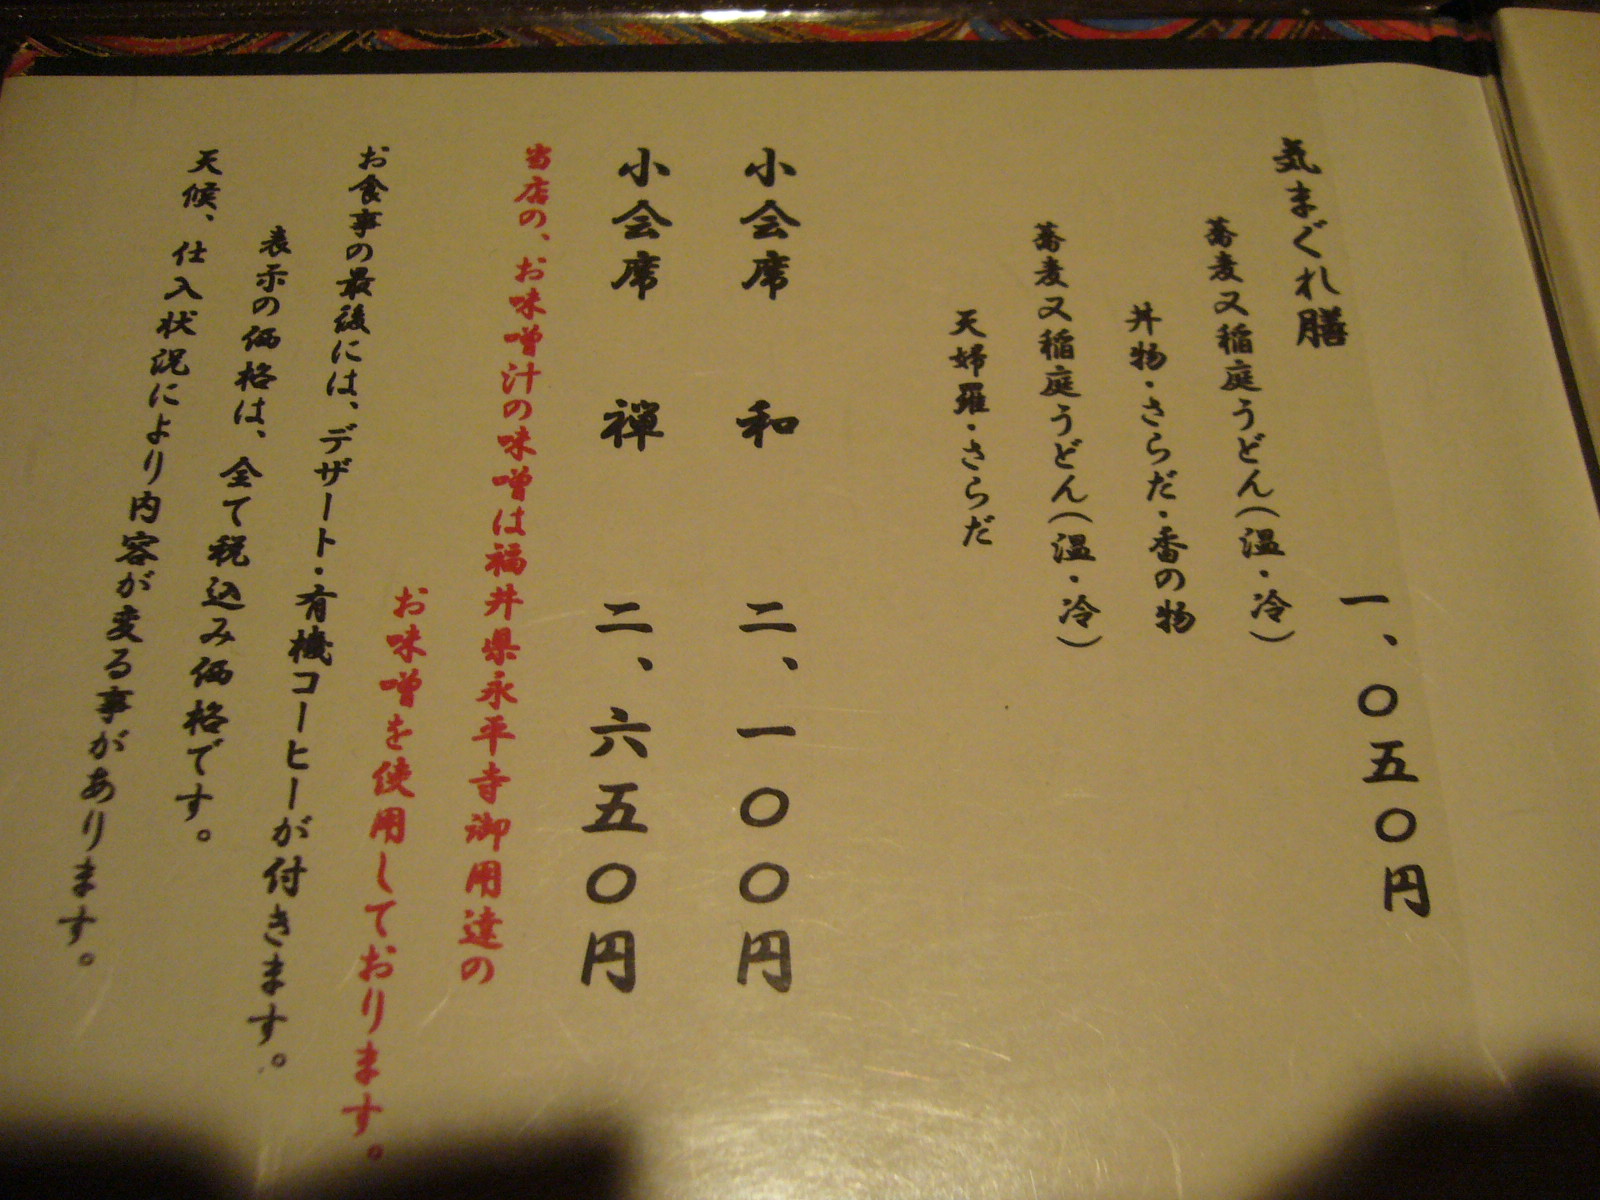 気まぐれ膳 一、〇五〇円
蕎麦又稲庭うどん(温・冷)
丼物・さらだ・香の物
蕎麦又稲庭うどん(温・冷)
天婦羅・さらだ
小会席 和 二、一〇〇円
小会席 禅 二、六五〇円
当店の、お味噌汁の味噌は福井県永平寺御用達の
お味噌を使用しております。
お食事の最後には、デザート・有機コーヒーが付きます。
表示の価格は、全て税込み価格です。
天候、仕入状況により内容が変る事があります。